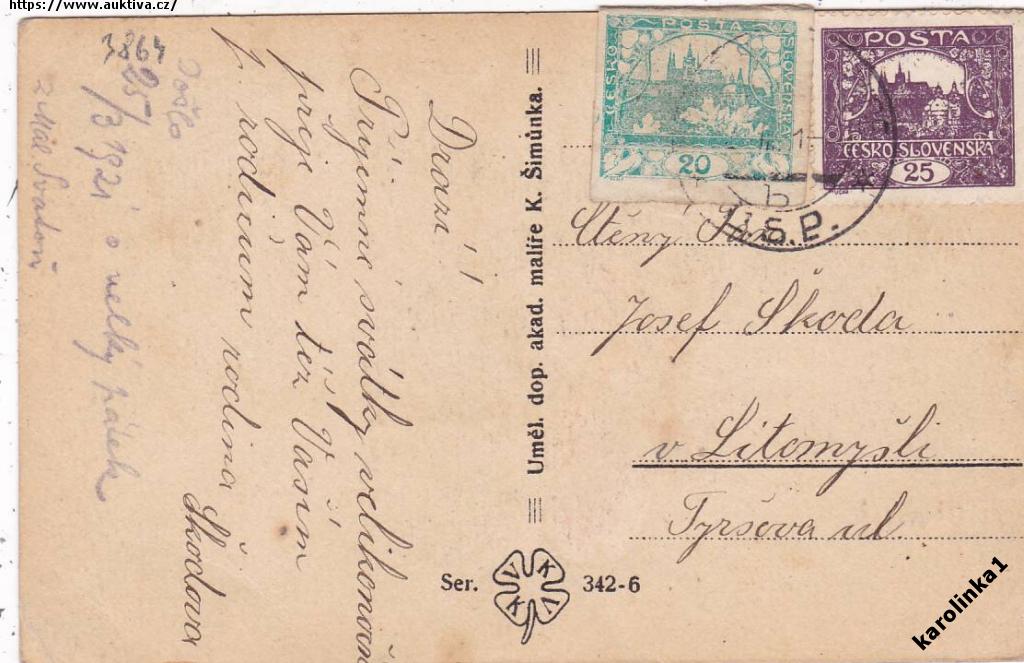 https://www.auktiva.cz/
3864
Došlo
25/3 1921 o velký pátek
z Mal. Svatoň
Drazí
Příjemné svátky velikonoční
přeje Vám též Vašim
p. rodičum rodina
Škordova
Uměl. dop. akad. malíře K. Šimůnka.
Ser. VKKV 342-6
POŠTA
ČESKO SLOVENSKÁ
20
POŠTA
ČESKO SLOVENSKÁ
25
S.P.
Ctěný Pán
Josef Škoda
v Litomyšli
Tyršova ul.
karolinka1